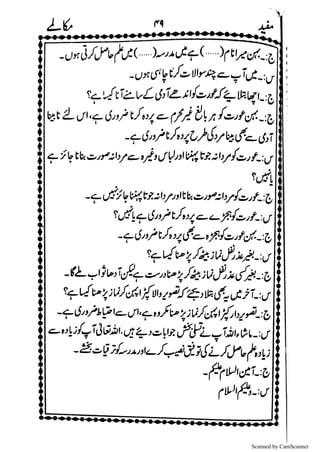 مفید ۴۹ مکالمے
ج:۔ بہن میرا نام (......) ہے میں مدرسہ (......) میں علم حاصل کرتی ہوں۔
س:۔ میں آپ سے چند سوالات کرنا چاہتی ہوں۔
ج:۔ اچھا بتلائیے کہ عورت کو اندھے آدمی کے سامنے آنا کیسا ہے؟
ج:۔ بہن عورت کو ہر بالغ غیر محرم سے پردہ کرنا ضروری ہے، اس لئے نابینا
آدمی سے بھی بینا مرد کی طرح پردہ کرنا ضروری ہے۔
س:۔ عورت کو مردانہ جوتا پہننا اور لباس وغیرہ سے مردانہ صورت بنانا جائز ہے
یا نہیں؟
ج:۔ عورت کو مردانہ صورت بنانا اور مردانہ جوتا پہننا جائز نہیں ہے۔
س:۔ عورت کو ہیجڑے سے پردہ کرنا ضروری ہے یا نہیں؟
ج:۔ بہن عورت کو ہیجڑہ سے بھی پردہ کرنا ضروری ہے۔
س:۔ بغیر عذر نفل نماز بیٹھ کر پڑھنا کیسا ہے؟
ج:۔ بغیر کسی عذر نفل نماز بیٹھ کر پڑھنا درست ہے لیکن آدھا ثواب ملے گا۔
س:۔ آخر میں یہ بھی بتلا دیجئے کہ تصویر والا کپڑا پہن کر نماز پڑھنا کیسا ہے؟
ج:۔ تصویر دار کپڑا پہن کر نماز پڑھنا مکروہ ہے، اس سے احتیاط ضروری ہے۔
س:۔ ماشاء اللہ آپ نے تسلی بخش جوابات دیئے ہیں، اللہ تعالیٰ آپ کو زیادہ سے
زیادہ علم حاصل کرنے کی توفیق نصیب کرے اور مدرسہ کو ترقیات بخشے۔
ج:۔ آمین السلام علیکم
س:۔ وعلیکم السلام
Scanned by CamScanner